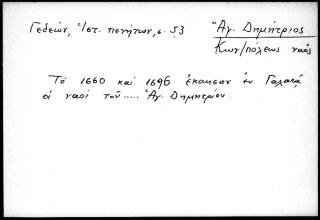 Γεδεών, Ἱστ. πενήτων, σ. 53
Ἁγ. Δημήτριος
Κων/πόλεως ναός
Τό 1660 καί 1696 ἐκάησαν ἐν Γαλατᾷ
οἱ ναοί τοῦ ..... Ἁγ. Δημητρίου.